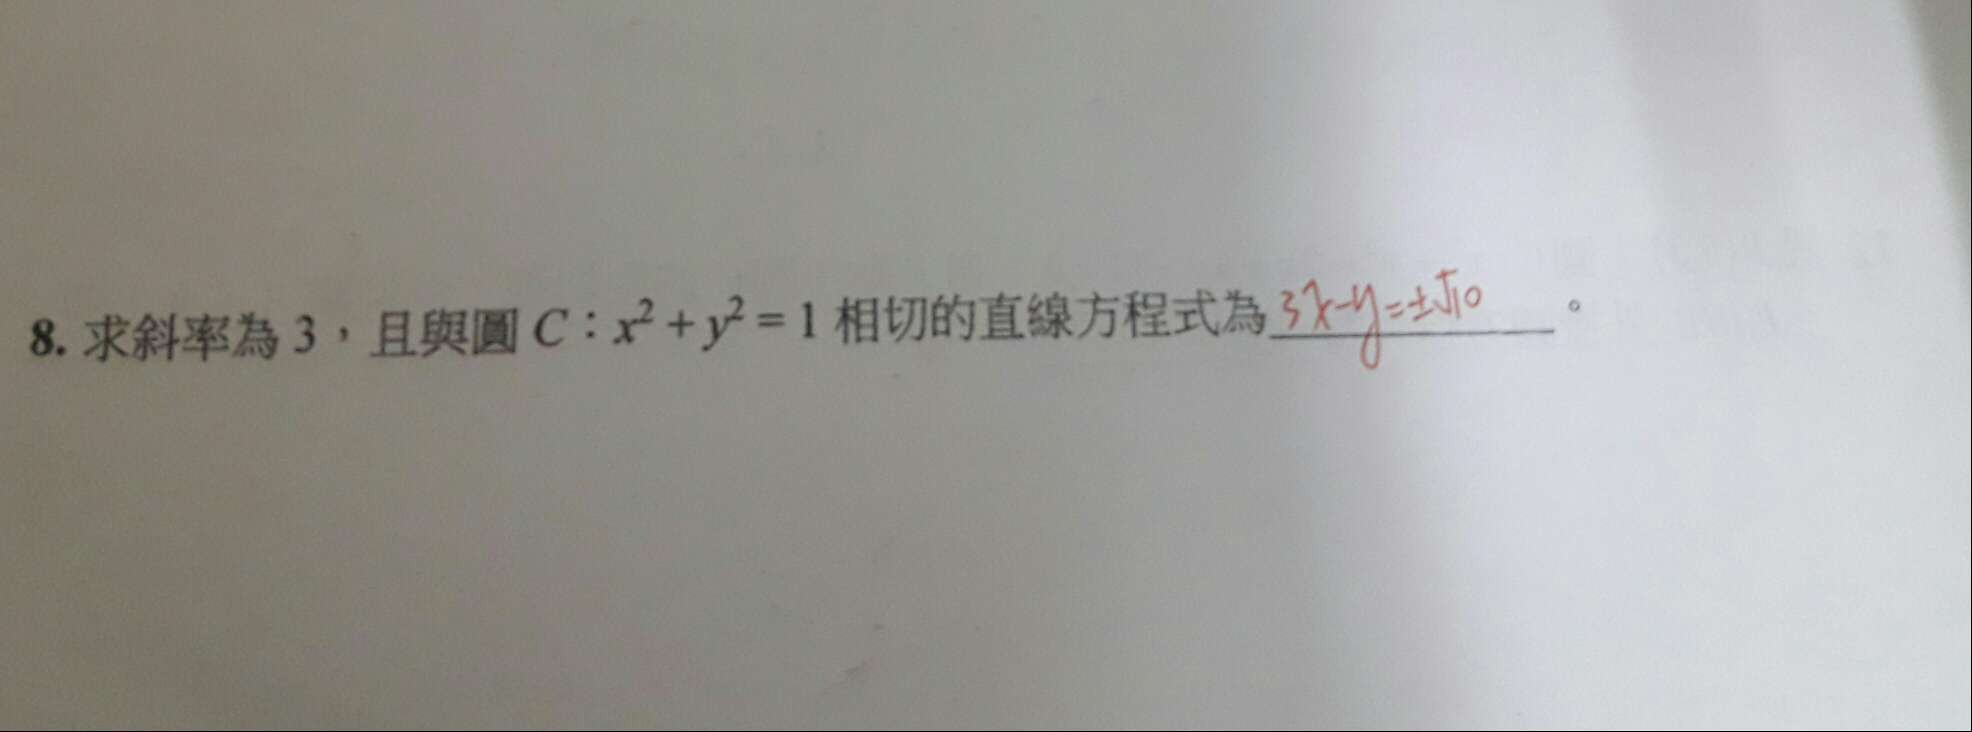 8. 求斜率為 3，且與圓 C：x² + y² = 1 相切的直線方程式為 3x-y=±√10 。